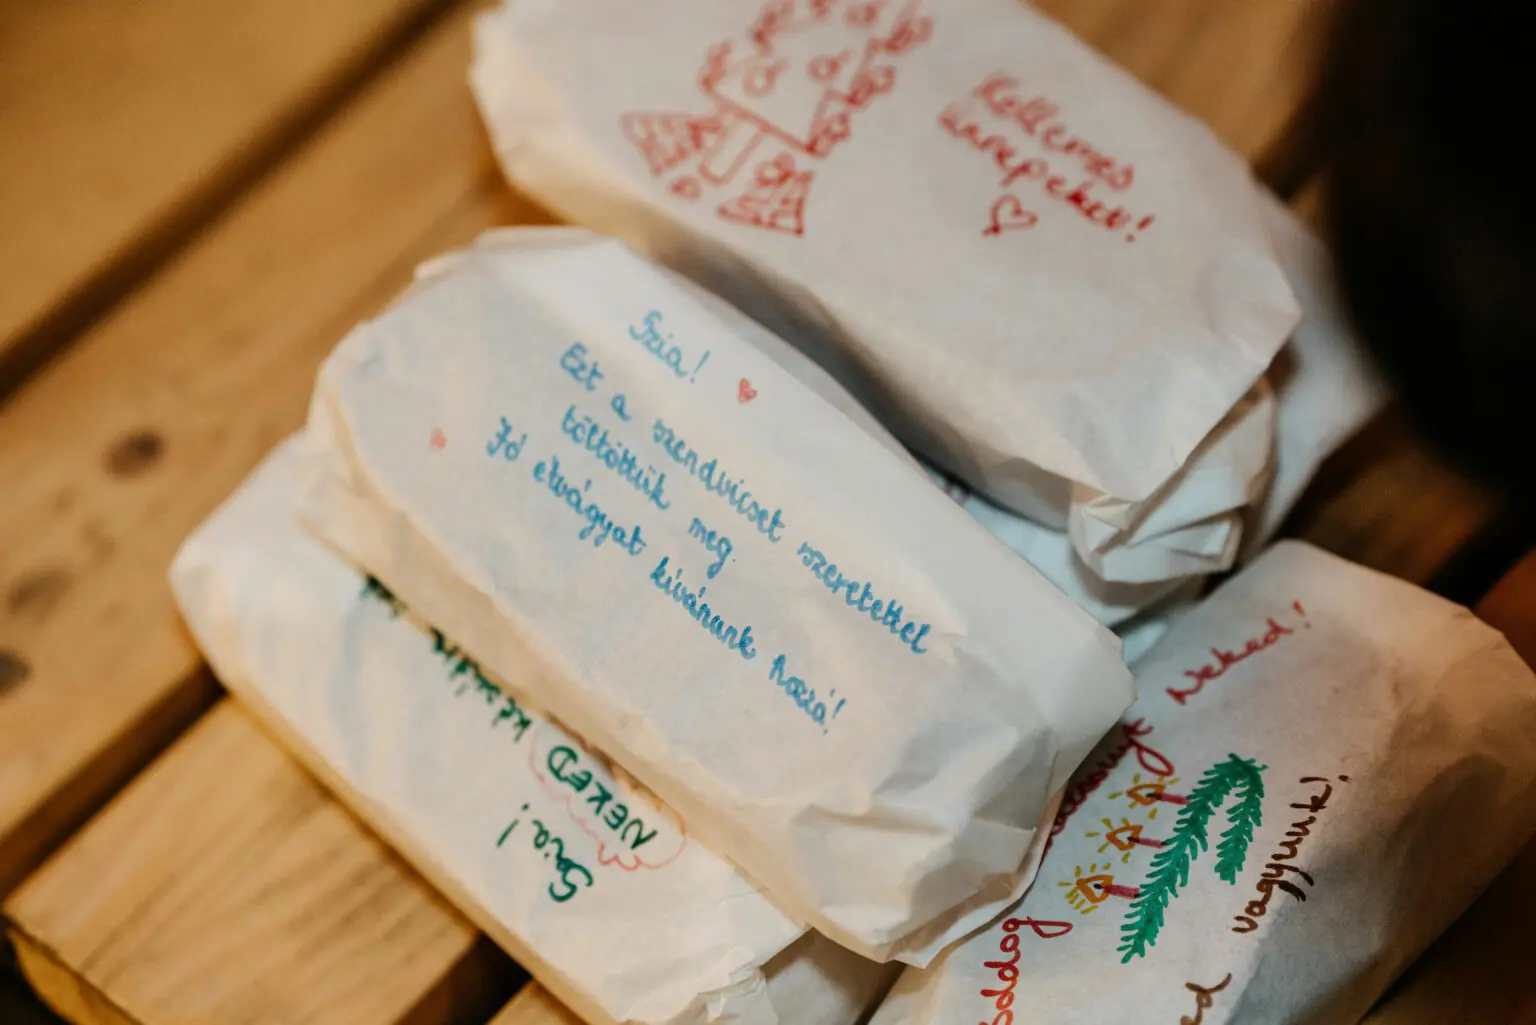 Kellemes
ünnepeket!
Szia!
Ezt a szendvicset szeretettel
töltöttük meg.
Jó étvágyat kívánunk hozzá!
Szia!
NEKED
Neked!
vagyunk!